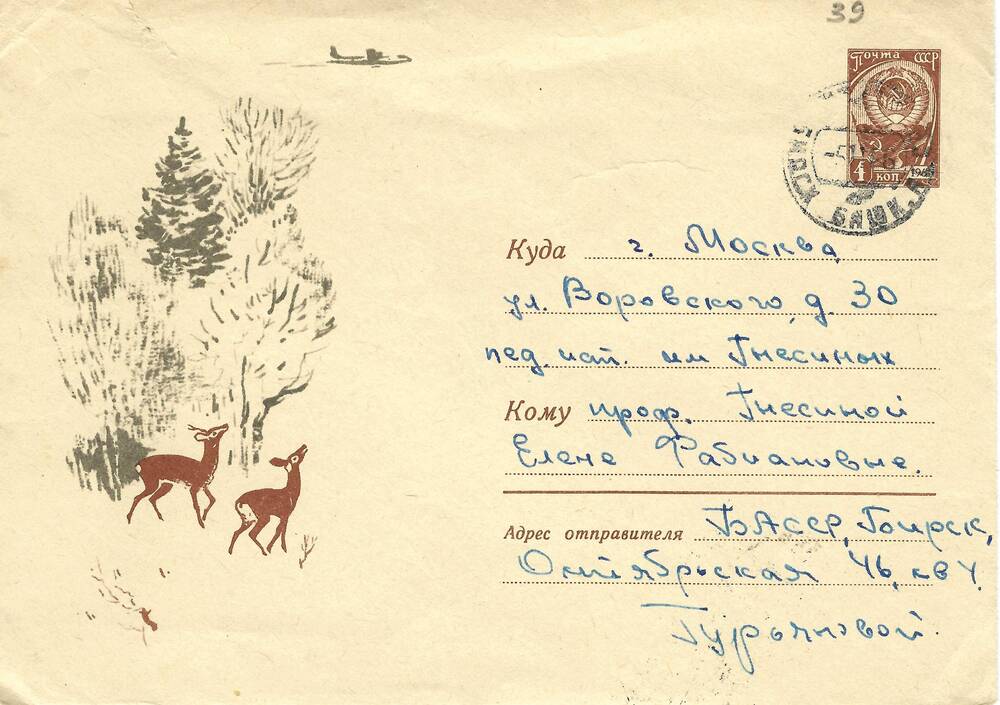 39
Почта СССР
4 коп.
Бирск Баш.
Куда г. Москва
ул. Воровского, д. 30
пед. инт. им Гнесиных
Кому проф. Гнесиной
Елене Фабиановне.
Адрес отправителя БАССР, г Бирск,
Октябрьская 46, кв 4.
Гурьяновой